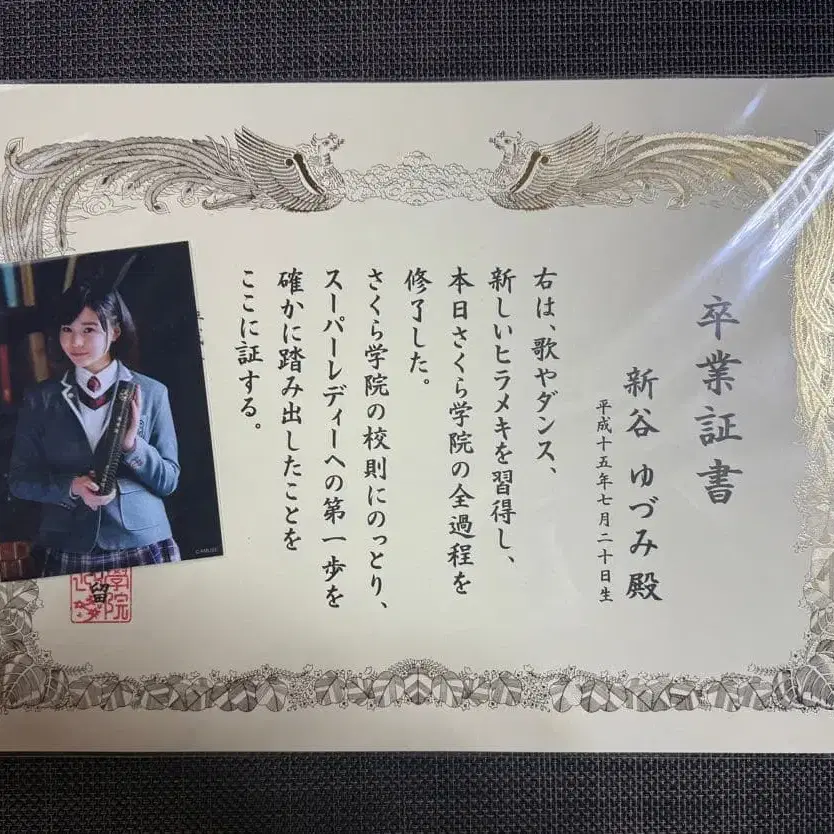 卒業証書
新谷 ゆづみ 殿
平成十五年七月二十日生
右は、歌やダンス、
新しいヒラメキを習得し、
本日さくら学院の全過程を
修了した。
さくら学院の校則にのっとり、
スーパーレディーへの第一歩を
確かに踏み出したことを
ここに証する。
学院
留